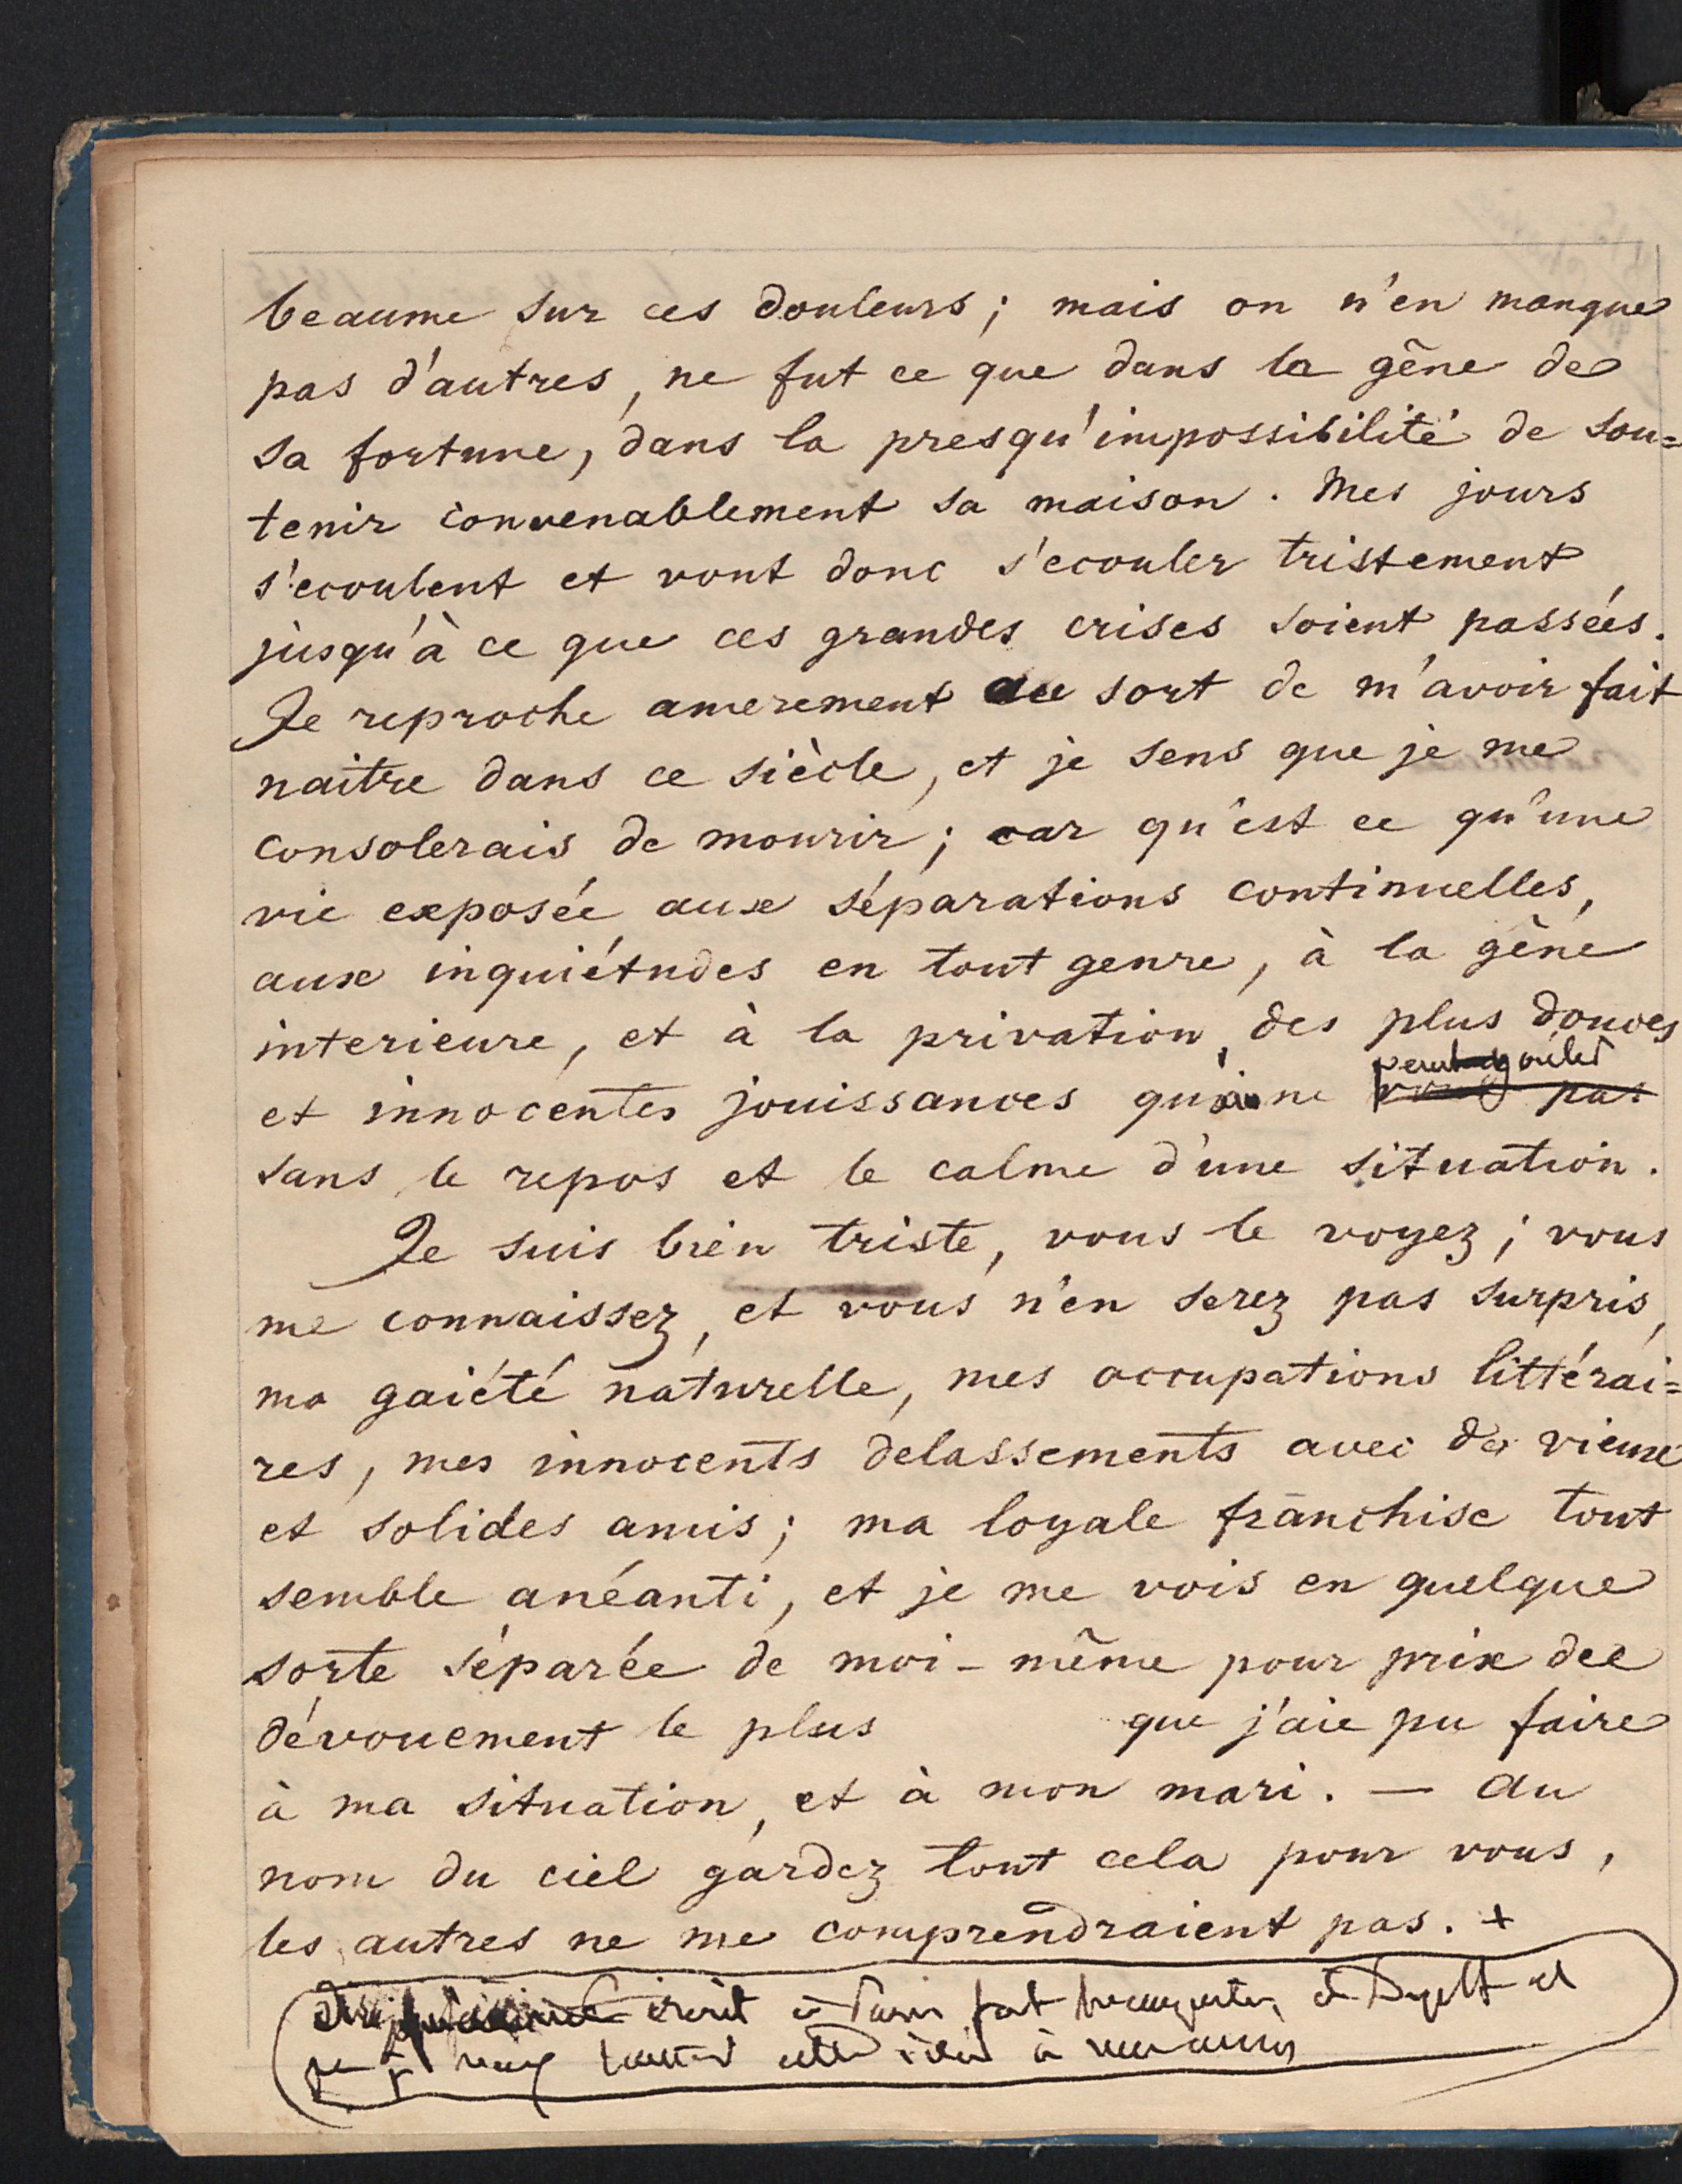 beaume sur ces douleurs ; mais on n'en manque
pas d'autres, ne fut ce que dans la gêne de
sa fortune, dans la presqu'impossibilité de sou=
tenir convenablement sa maison. Mes jours
s'ecoulent et vont donc s'ecouler tristement
jusqu'à ce que ces grandes crises soient passées.
Je reproche amerement au sort de m'avoir fait
naitre dans ce siècle, et je sens que je me
consolerais de mourir ; car qu'est ce qu'une
vie exposée aux séparations continuelles,
aux inquiétudes en tout genre, à la gêne
interieure, et à la privation des plus douces
peut goûter
et innocentes jouissances qu'on ne pas
sans le repos et le calme d'une situation.
Je suis bien triste, vous le voyez ; vous
me connaissez, et vous n'en serez pas surpris,
ma gaiété naturelle, mes occupations littérai=
res, mes innocents delassements avec de vieux
et solides amis ; ma loyale franchise tout
semble anéanti, et je me vois en quelque
sorte séparée de moi-même pour prix de
dévouement le plus que j'aie pu faire
à ma situation, et à mon mari. — Au
nom du ciel gardez tout cela pour vous,
les autres ne me comprendraient pas. +
écrit à Paris fort et
à